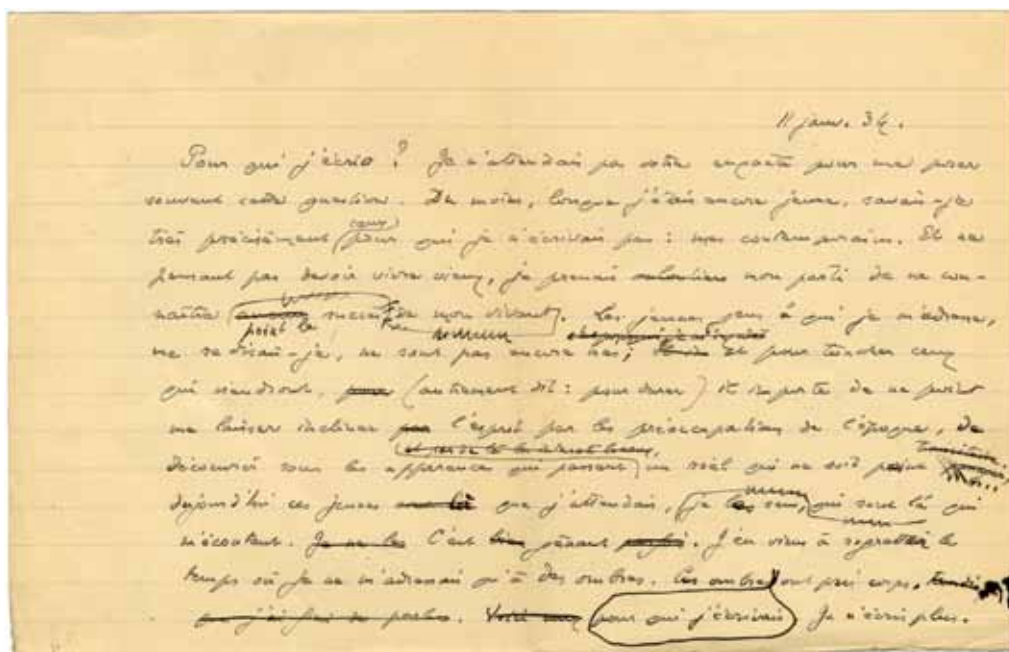 11 janv. 34.
Pour qui j'écris ? Je n'attendais pas votre enquête pour me poser
souvent cette question. Du moins, lorsque j'étais encore jeune, savais-je
ceux
très précisément pour qui je n'écrivais pas : mes contemporains. Et ne
pensant pas devoir vivre vieux, je prenais mon parti de ne con-
naître succès de mon vivant. Les jeunes gens à qui je m'adresse,
point le
me disais-je, ne sont pas encore nés ; et pour toucher ceux
qui viendront, pour (autrement dit : pour durer) il importe de ne point
me laisser incliner par l'esprit par les préoccupations de l'époque, de
découvrir sous les apparences qui passent un réel qui ne soit
Aujourd'hui ces jeunes que j'attendais, je les sens, qui sont là qui
m'écoutent. Je ne les C'est gênant parfois. J'en viens à regretter le
temps où je ne m'adressais qu'à des ombres. Ces ombres ont pris corps.
que j'ai fini de parler. Voici pour qui j'écrivais Je n'écris plus.